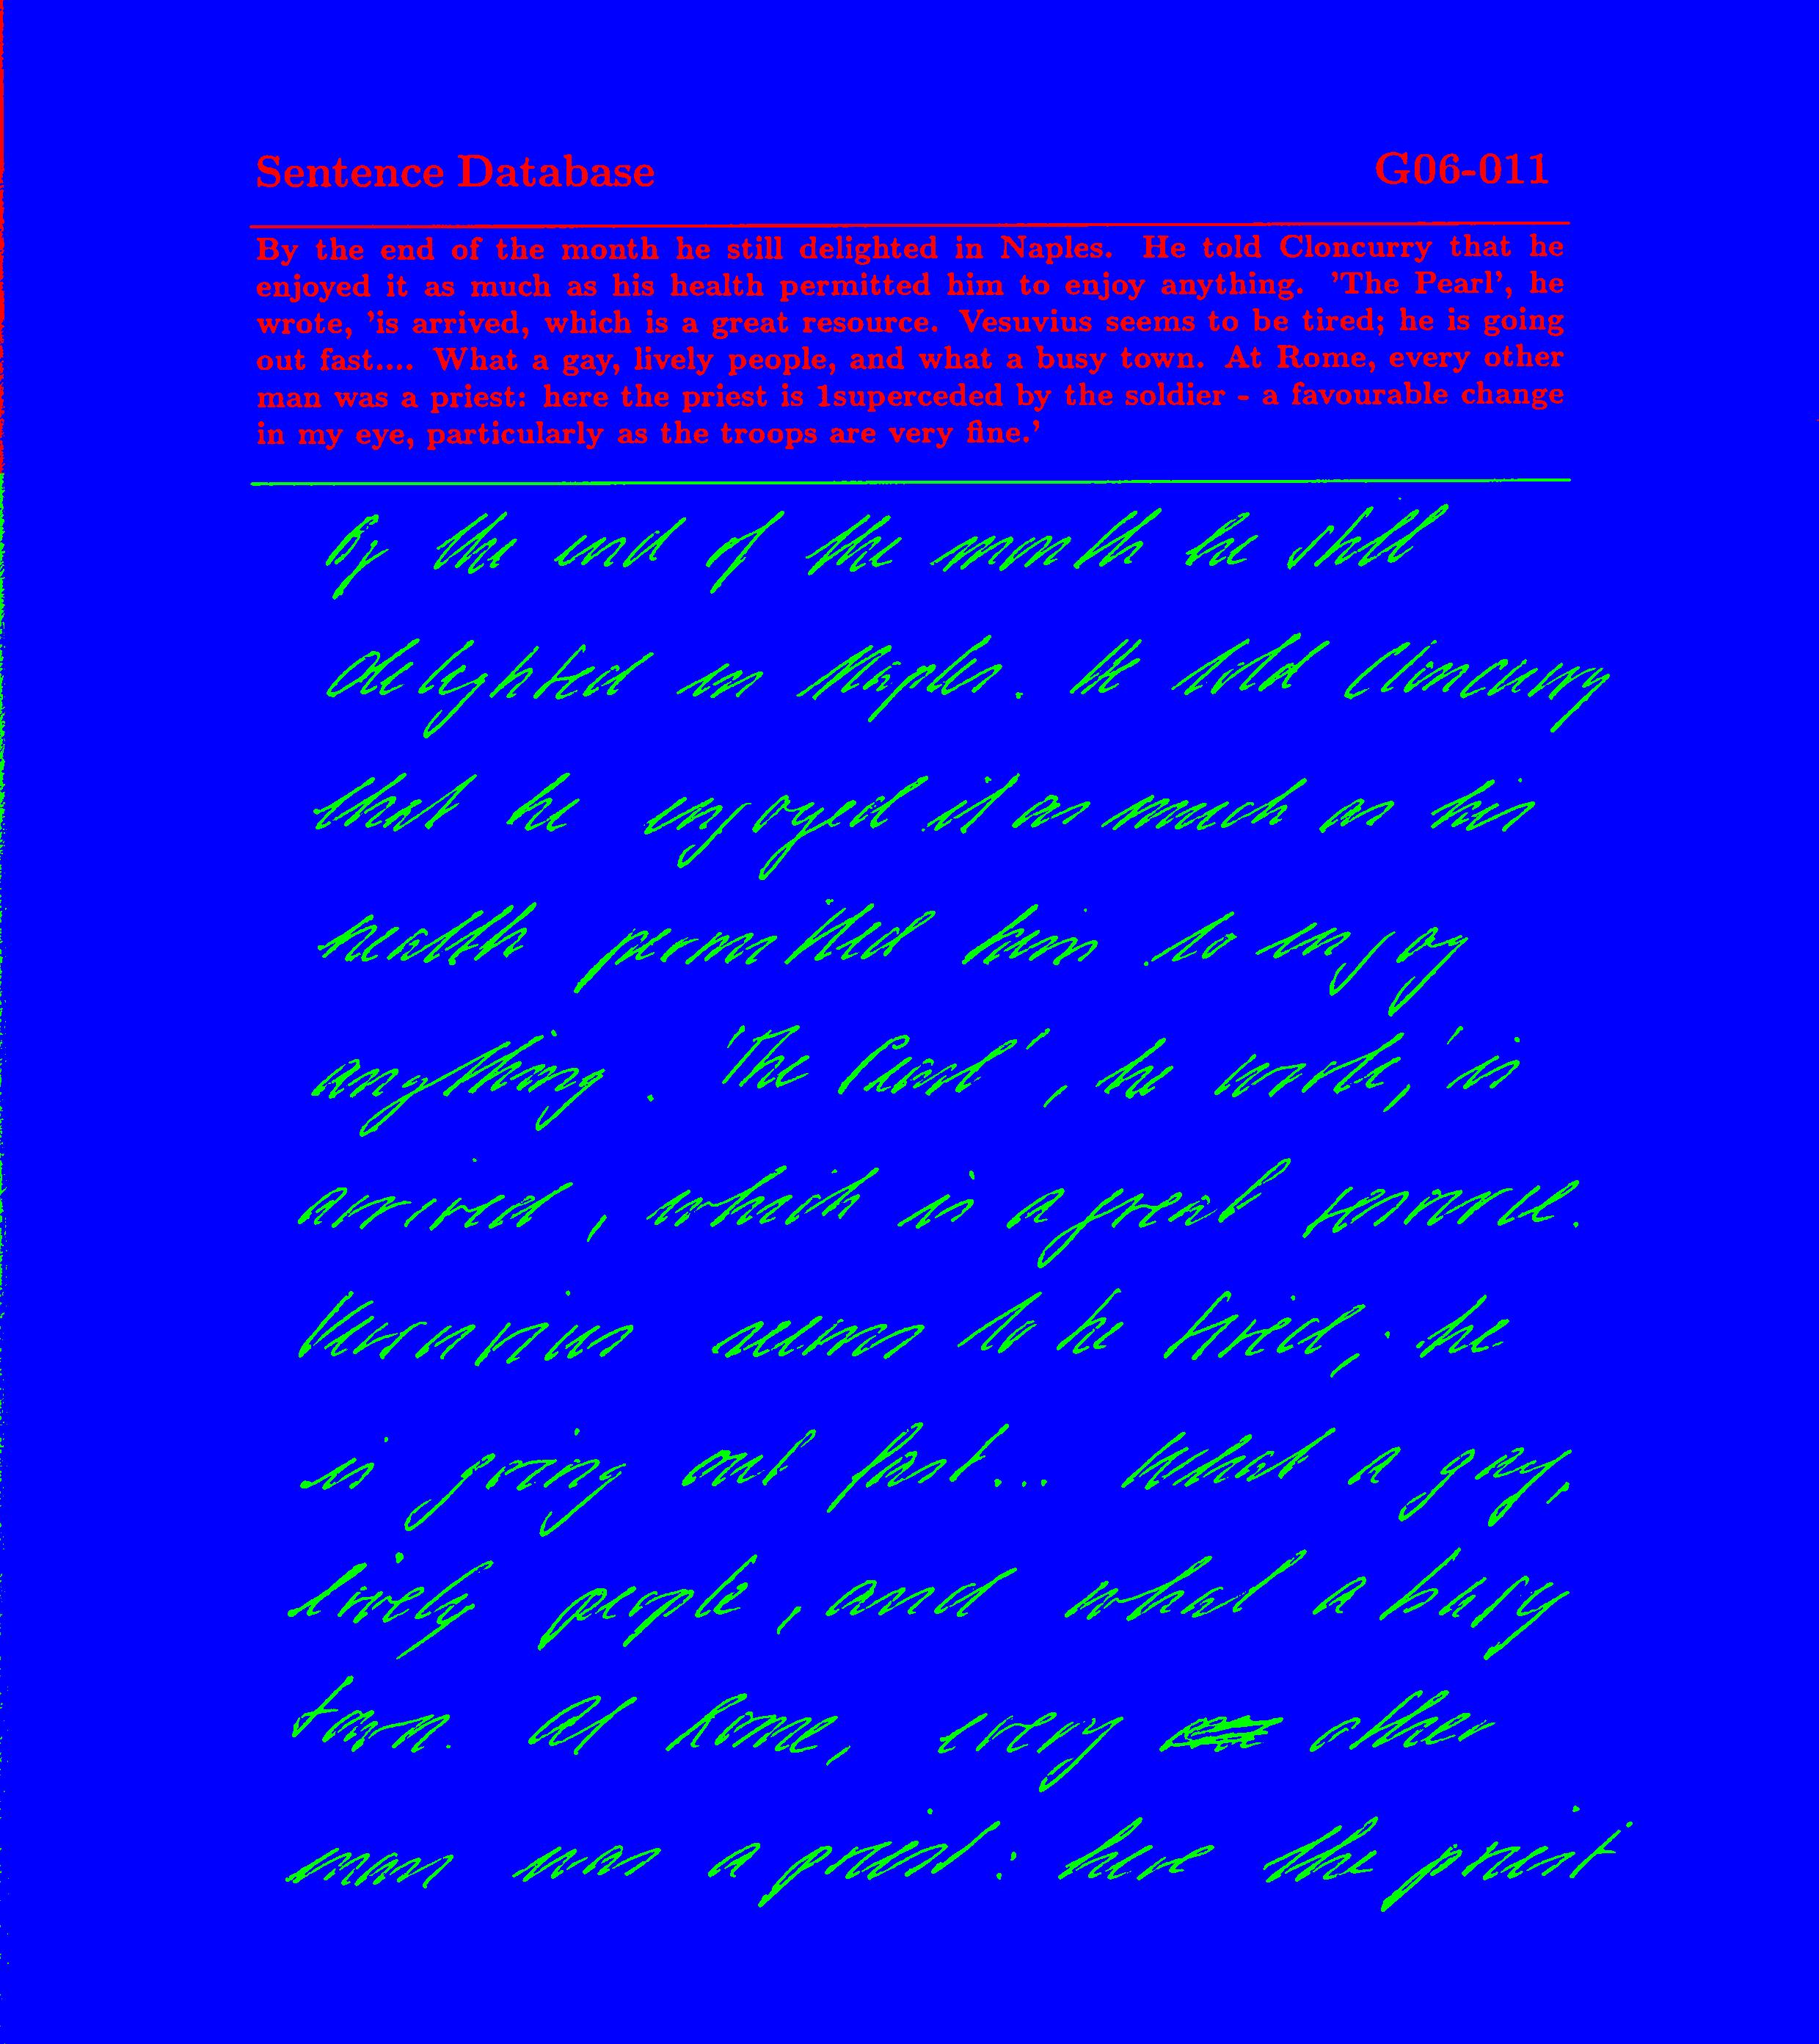 Sentence Database G06-011
By the end of the month he still delighted in Naples. He told Cloncurry that he
enjoyed it as much as his health permitted him to enjoy anything. 'The Pearl', he
wrote, 'is arrived, which is a great resource. Vesuvius seems to be tired; he is going
out fast.... What a gay, lively people, and what a busy town. At Rome, every other
man was a priest: here the priest is 1superceded by the soldier - a favourable change
in my eye, particularly as the troops are very fine.'
By the end of the month he still
delighted in Naples. He told Cloncurry
that he enjoyed it as much as his
health permitted him to enjoy
anything. 'The Pearl', he wrote, 'is
arrived, which is a great resource.
Vesuvius seems to be tired; he
is going out fast... What a gay,
lively people, and what a busy
town. At Rome, every other
man was a priest: here the priest